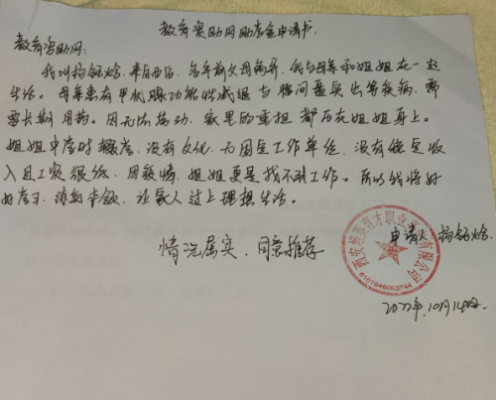 教育资助网助学金申请书
教育资助网：
我叫杨 来自西 多年前父母离异，我与母亲和姐姐在一起
生活。母亲患有甲状腺功能性减退与椎间盘突出等疾病，需
要长期用药。因无法劳动，家里的重担都压在姐姐身上。
姐姐中学时辍学，没有文化，无固定工作单位，没有稳定收
入且工资很低，因疫情，姐姐更是找不到工作。所以我将好
好学习，练就本领，让家人过上理想生活。
情况属实，同意推荐
申请人 杨
西安 才职业 有限公司
6101948063744
2022年10月14日